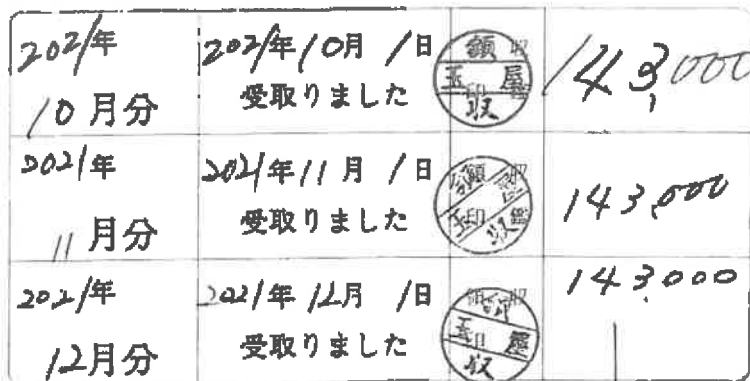 2021年
10月分
2021年10月1日
受取りました
領収
玉屋
印
収
143,000
2021年
11月分
2021年11月1日
受取りました
領収
玉
印
収
143,000
2021年
12月分
2021年12月1日
受取りました
収
玉屋
印
収
143,000